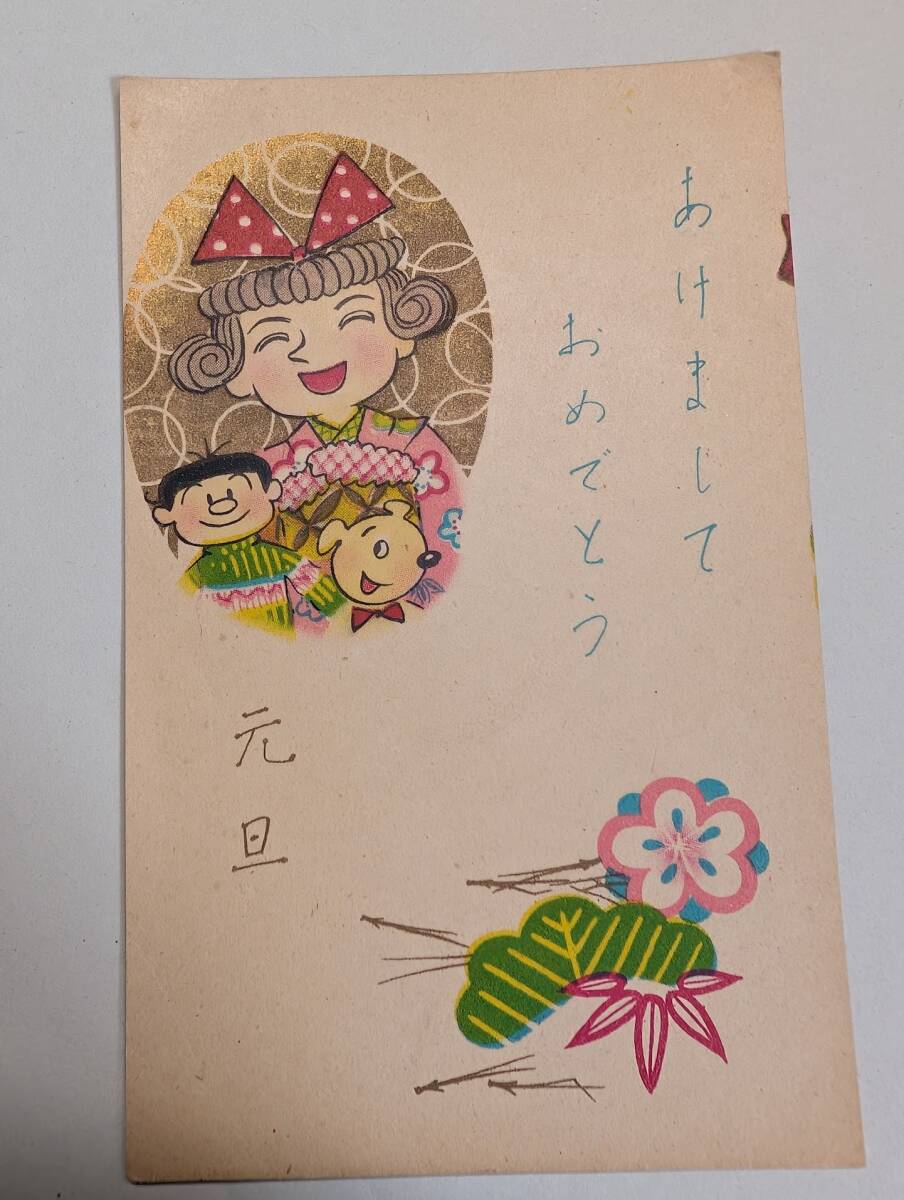 あけまして
おめでとう
元旦